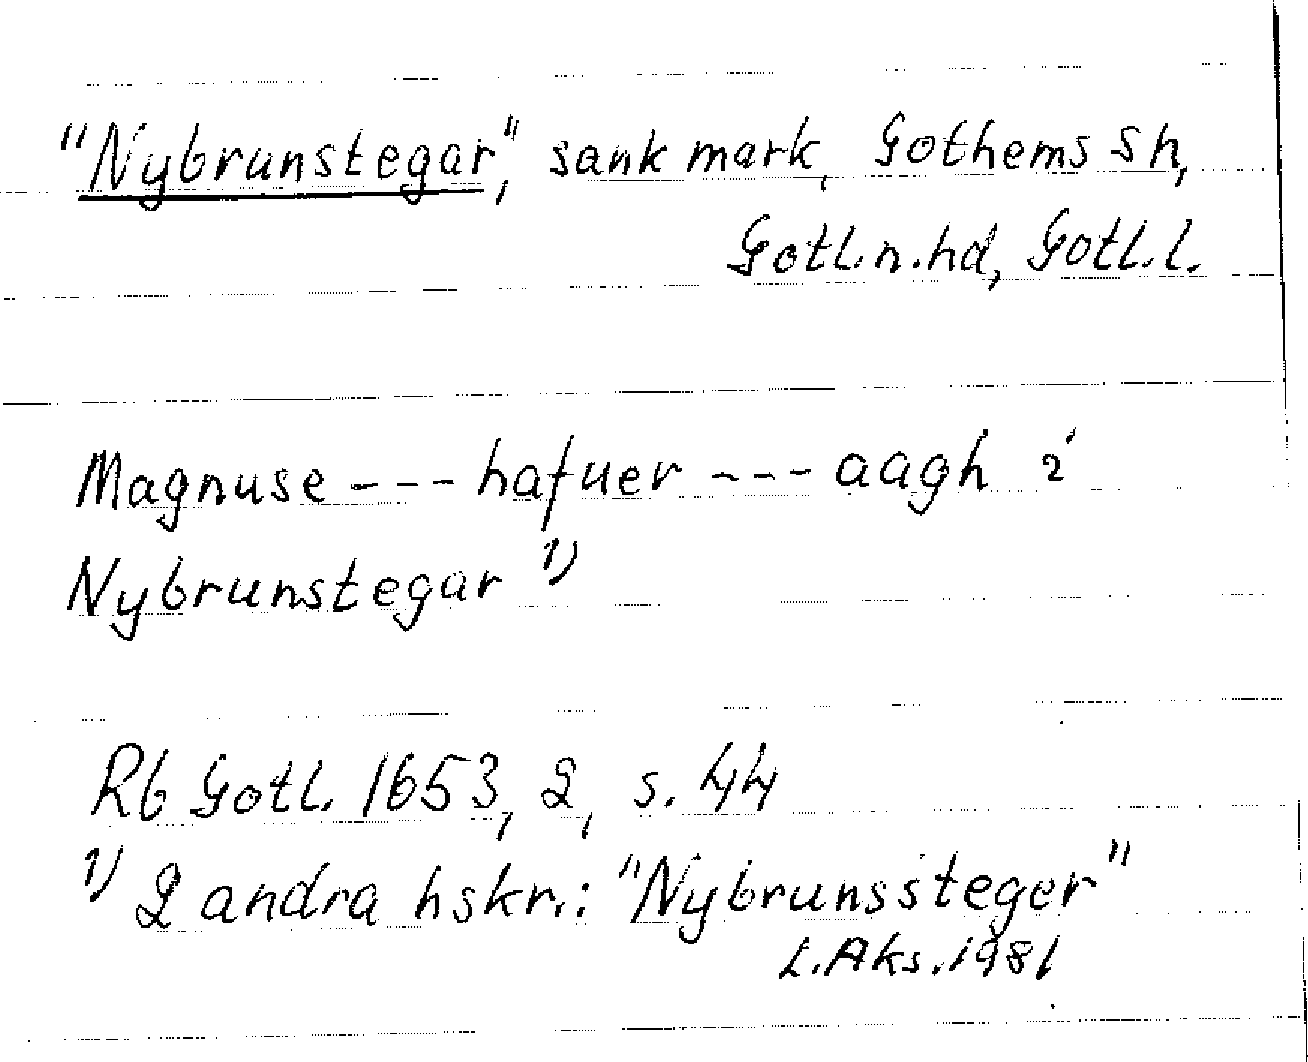 "Nybrunstegar", sank mark, Gothems sn,
Gotl.n.hd, Gotl.l.
Magnuse --- hafuer --- aagh i
Nybrunstegar 1)
Rb Gotl. 1653, 2, s. 44
1) 2 andra hskr.: "Nybrunssteger"
L.Aks.1981